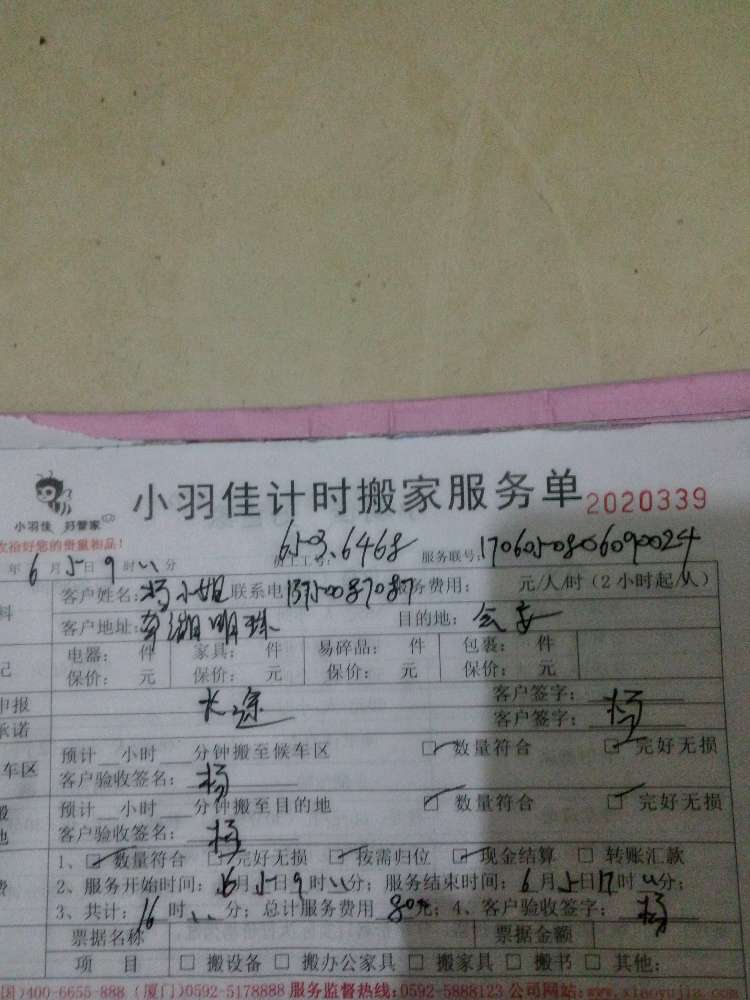 小羽佳计时搬家服务单 2020339
小羽佳 好管家
收拾好您的贵重物品！
工号： 6503.6468 服务联号：1706050806090024
年 6 月 5 日 9 时 分
客户姓名：杨小姐 联系电 服务费用： 元/人/时（2小时起/人）
客户地址： 湖明珠 目的地：
电器： 件 家具： 件 易碎品： 件 包裹： 件
保价： 元 保价： 元 保价： 元 保价： 元
申报 长途 客户签字：
承诺 客户签字：杨
预计 小时 分钟搬至候车区 数量符合 完好无损
车区 客户验收签名：杨
预计 小时 分钟搬至目的地 数量符合 完好无损
客户验收签名：杨
1、 数量符合 完好无损 按需归位 现金结算 转账汇款
2、服务开始时间：6月5日9时 分；服务结束时间：6月5日17时 分；
3、共计：16时 分；总计服务费用 元；4、客户验收签字：杨
票据名称 票据金额
项 目 搬设备 搬办公家具 搬家具 搬书 其他：
400-6655-888（厦门）0592-5178888 服务监督热线：0592-5888123 公司网站：www.xiaoyujia.com